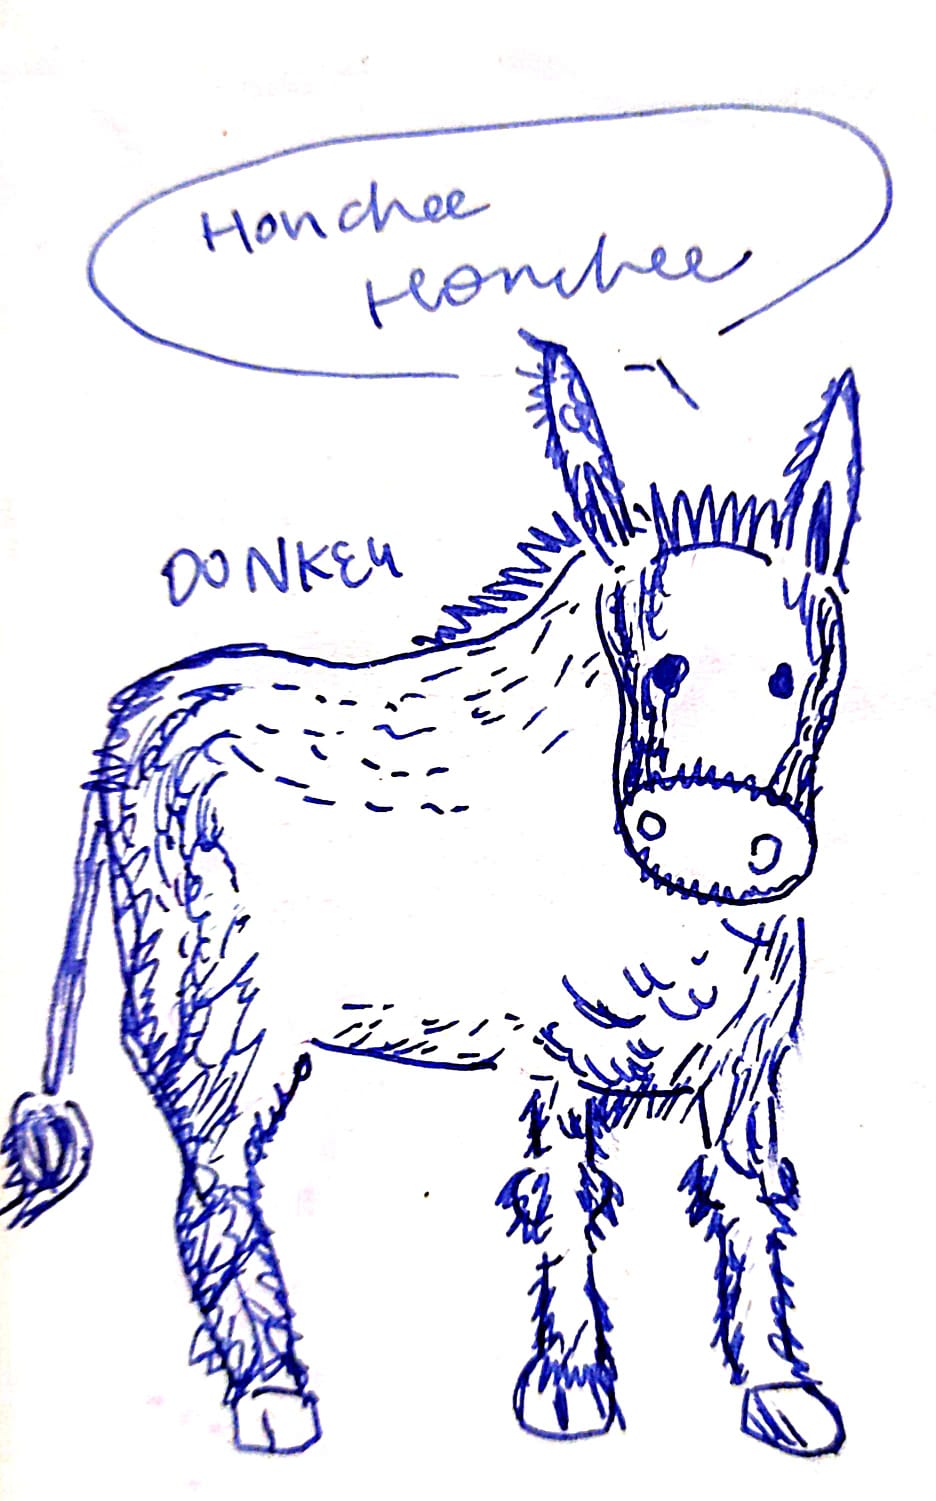 Honchee
Honchee
DONKEY